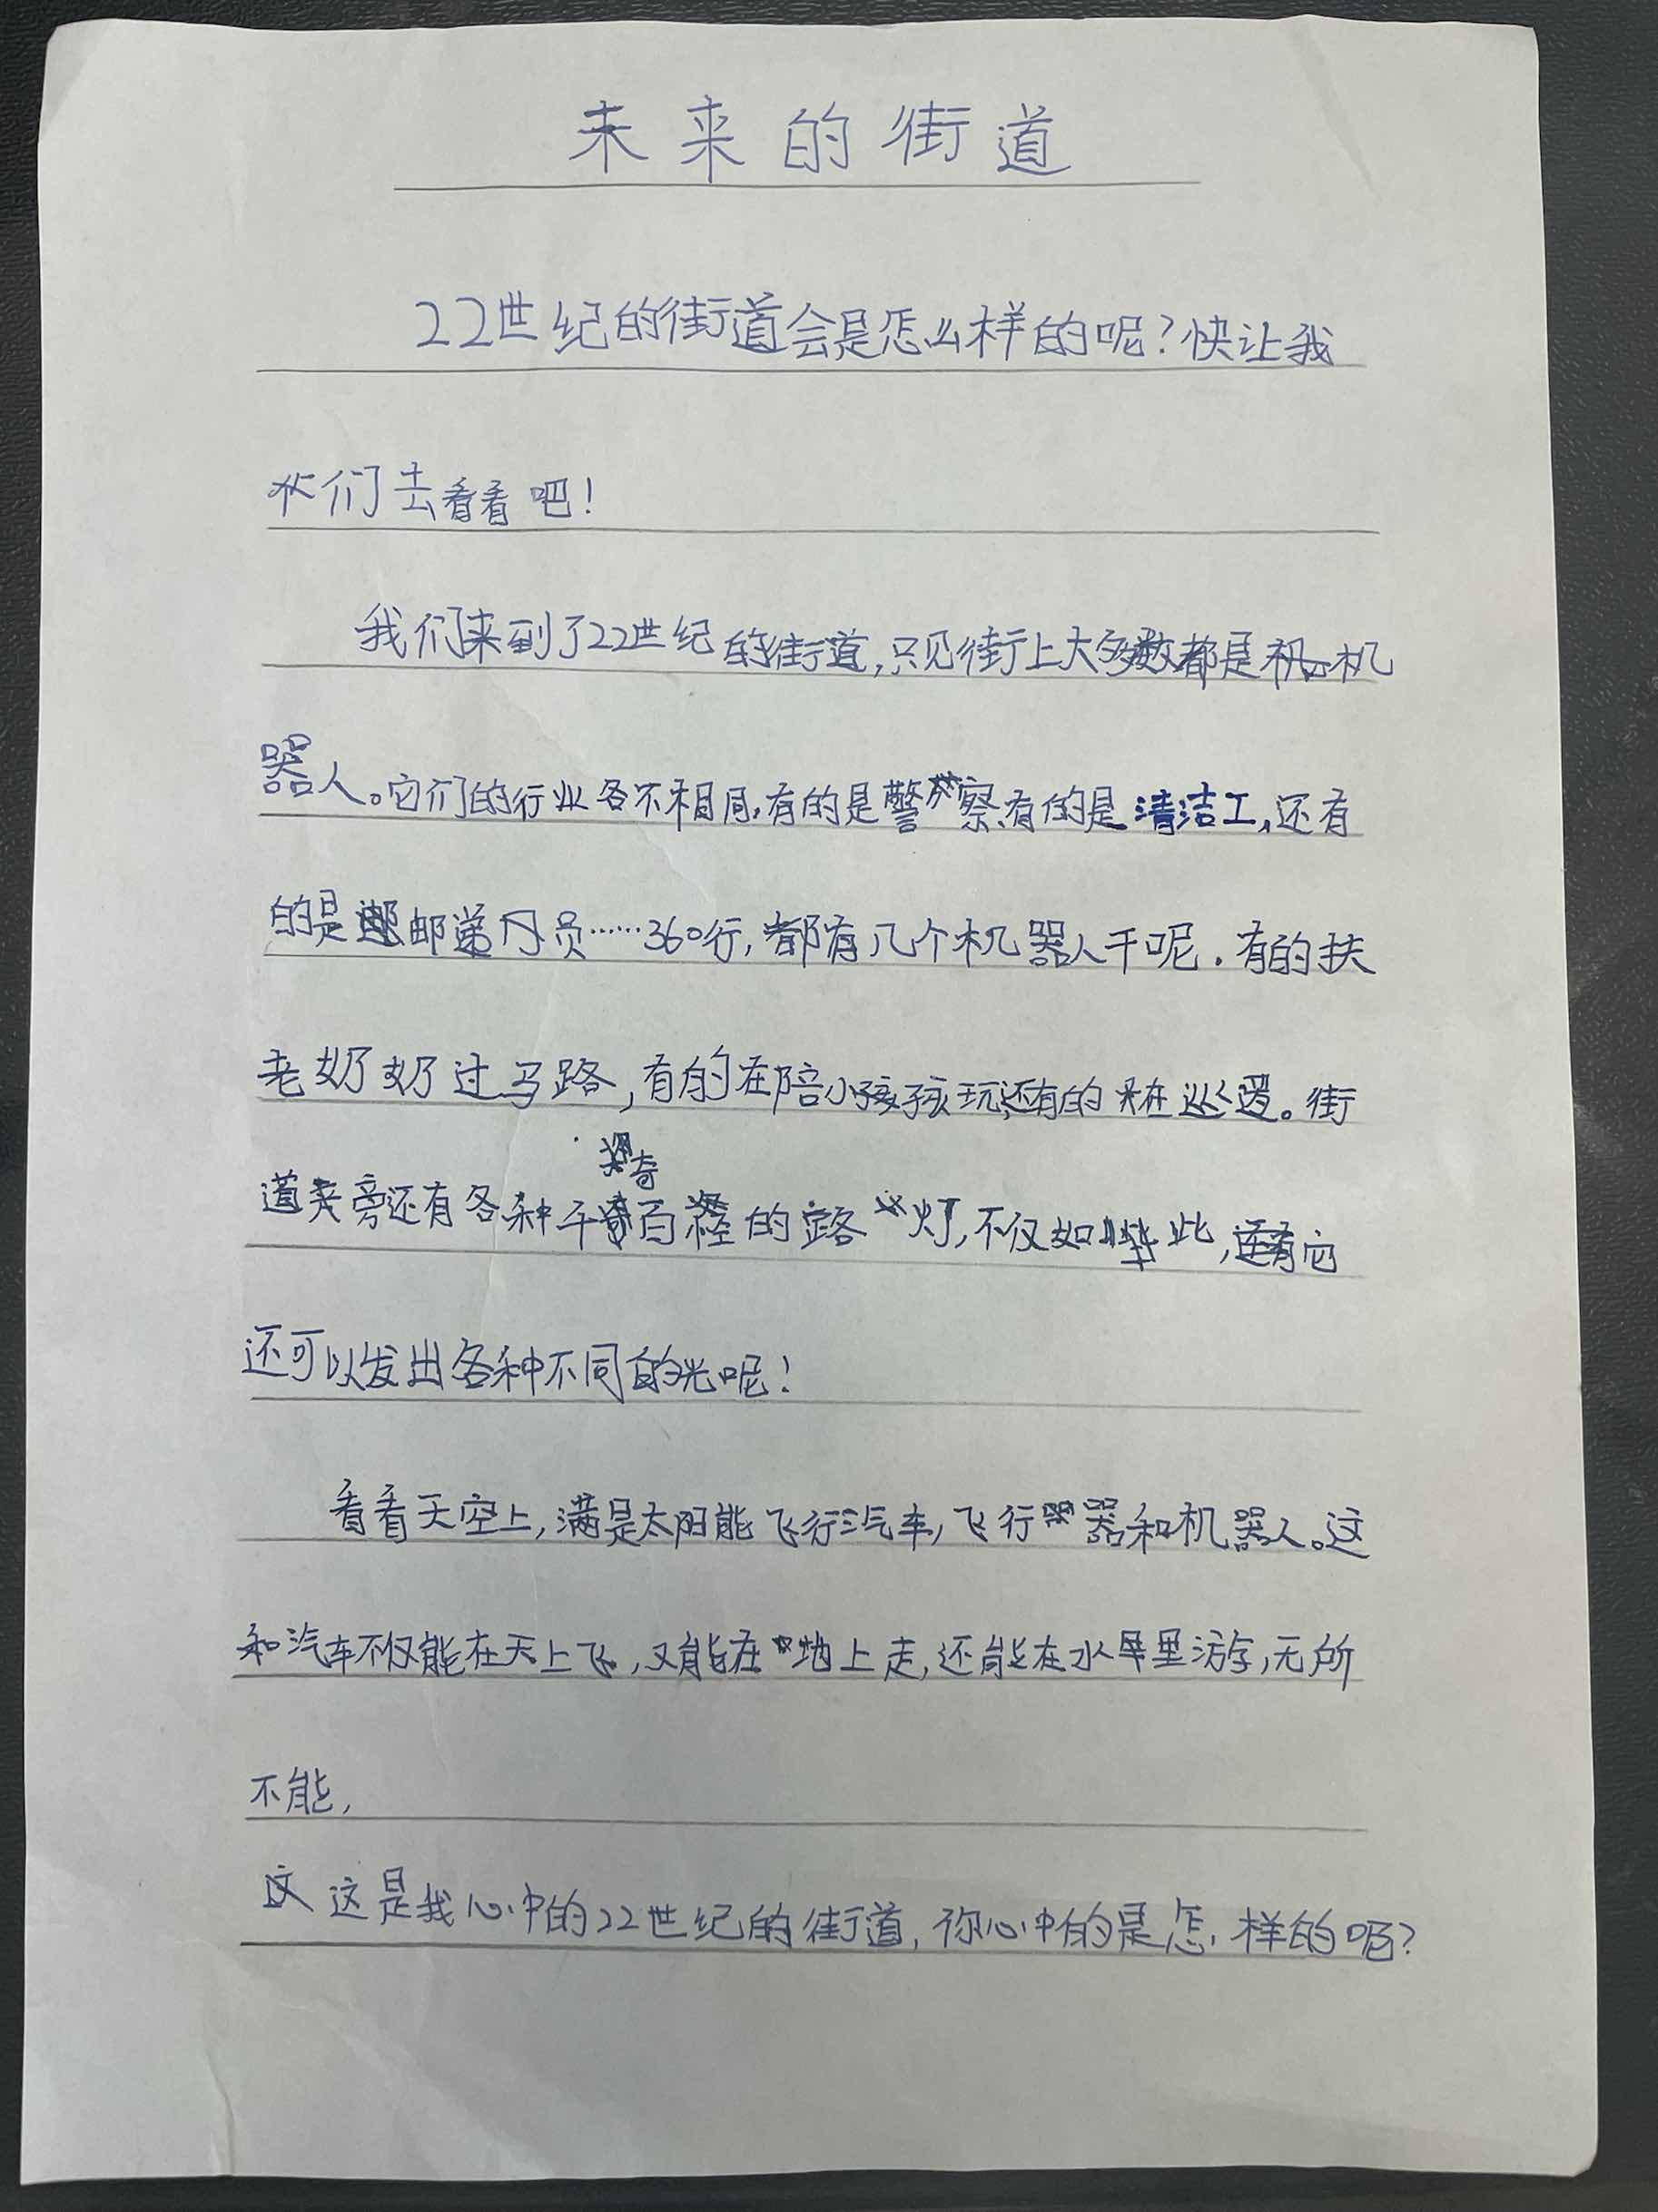 未来的街道
22世纪的街道会是怎么样的呢?快让我
们去看看吧!
我们来到了22世纪的街道,只见街上大多数都是机
器人。它们的行业各不相同,有的是警察,有的是清洁工,还有
的是邮递员……360行,都有几个机器人干呢.有的扶
老奶奶过马路,有的在陪小孩孩玩,还有的在巡逻。街
道旁还有各种千奇百怪的路灯,不仅如此,它
还可以发出各种不同的光呢!
看看天空上,满是太阳能飞行汽车,飞行器和机器人。这
和汽车不仅能在天上飞,又能在地上走,还能在水里游,无所
不能,
这是我心中的22世纪的街道,你心中的是怎样的呢?